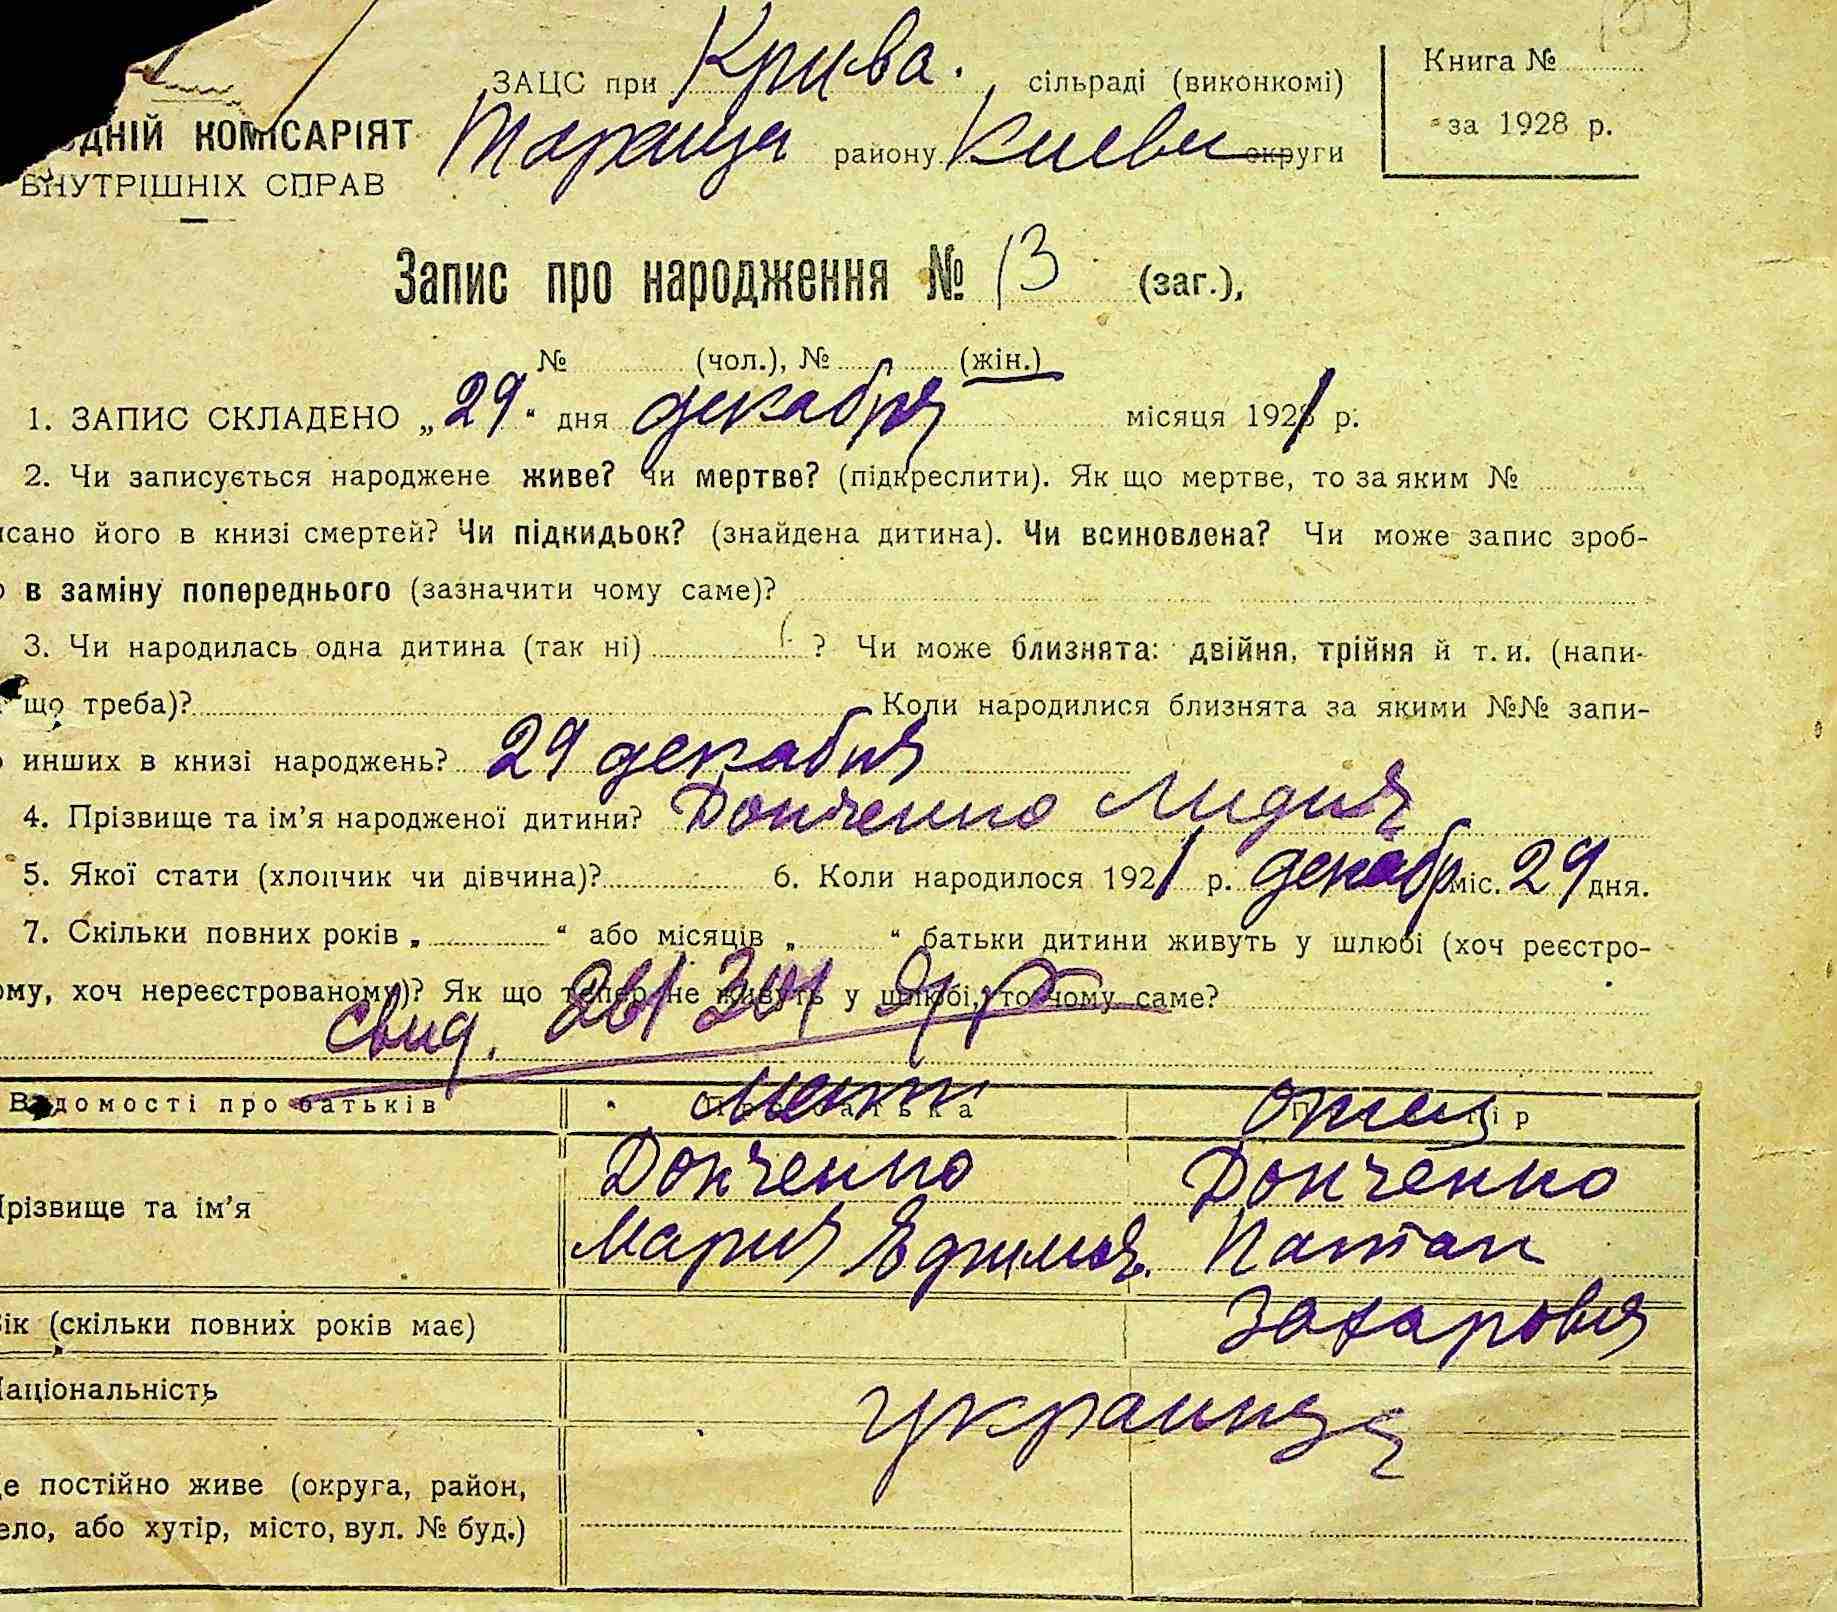 159
ЗАЦС при Крива. сільраді (виконкомі)
Книга №
ОДНІЙ КОМІСАРІЯТ
Тараща району Киеви округи
за 1928 р.
ВНУТРІШНІХ СПРАВ
Запис про народження № 13 (заг.),
№ (чол.), № (жін.)
1. ЗАПИС СКЛАДЕНО „29“ дня декабря місяця 1921 р.
2. Чи записується народжене живе? чи мертве? (підкреслити). Як що мертве, то за яким №
исано його в книзі смертей? Чи підкидьок? (знайдена дитина). Чи всиновлена? Чи може запис зроб-
о в заміну попереднього (зазначити чому саме)?
3. Чи народилась одна дитина (так ні) ? Чи може близнята: двійня, трійня й т. и. (напи-
що треба)? Коли народилися близнята за якими №№ запи-
о инших в книзі народжень? 29 декабря
4. Прізвище та ім’я народженої дитини? Донченко Лидия
5. Якої стати (хлопчик чи дівчина)? 6. Коли народилося 1921 р. декабр міс. 29 дня.
7. Скільки повних років „ “ або місяців „ “ батьки дитини живуть у шлюбі (хоч реєстро-
ому, хоч нереєстрованому)? Як що тепер не живуть у шлюбі, то чому саме?
свид.
Відомості про батьків Про батька мать отец
Прізвище та ім’я
Донченко Донченко
Мария Ефимов. Патап
Захарович
Вік (скільки повних років має)
Національність
украинця
Де постійно живе (округа, район,
село, або хутір, місто, вул. № буд.)